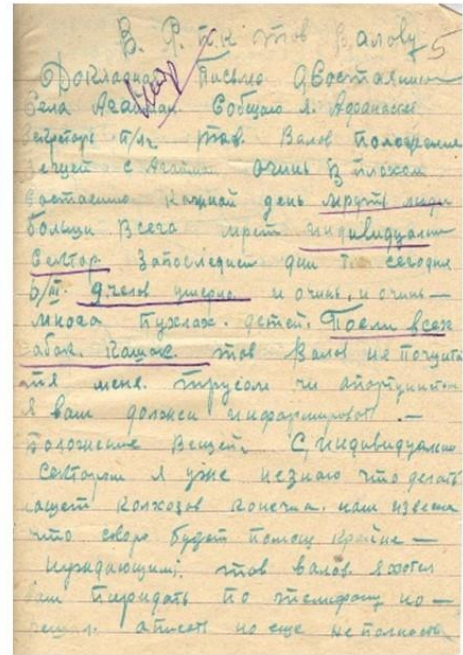 В. Р.П.К тов Валову 5
Докладная Письмо О Состаянии
Села Агайман Собщаю я. Афанасьев
Секретарь п/яч тов. Валов Положение
вещей с Агайм. очинь в плохом
состаению Каждной день мруть люди
больши Всего мрет индивидуалн
Сектор Запоследнеи дни т. сегодня
6/III. 9 челов умерло и очинь, и очинь —
многа пухлах. детей. Поели всех
сабак. Кашак. тов Валов не почита
тя меня. трусом чи апортунистом
Я вам должен информироват. —
положение Вещей. С, индивидуални
сектором я уже незнаю что делать
нащет Колхозов конечна. нам извесна
что скоро будет помощ Крайне —
нуждающимъ. тов Валов. я хотел
вам пиридать по телефону но
а писать но еще не полность